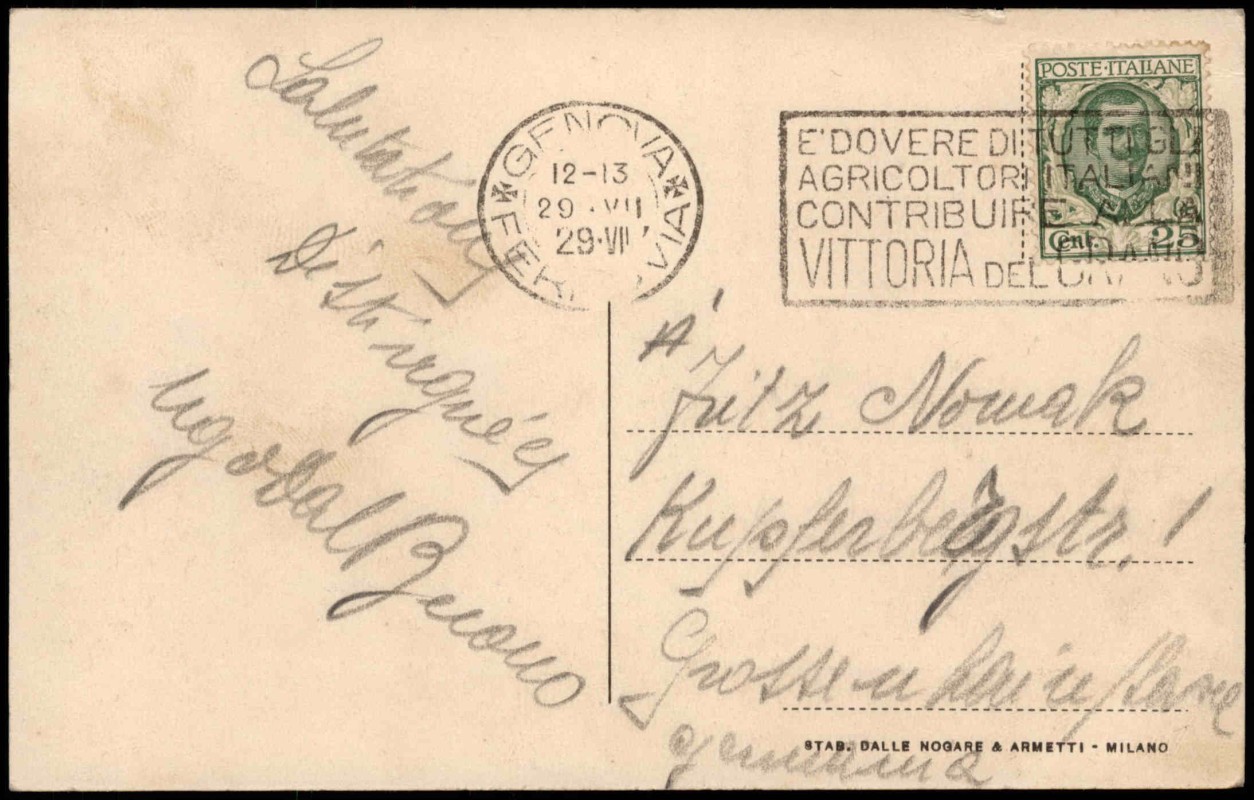 Salutations
Distinguées
Ugo Dal Buono
GENOVA
12-13
29 · VII
29·VII
FERROVIA
POSTE·ITALIANE
Cent. 25
E' DOVERE DI TUTTI GLI
AGRICOLTORI ITALIANI
CONTRIBUIRE ALLA
VITTORIA DEL GRANO
A
Fritz Nowak
Kupferbergstr. 1
Grossenhain
germania
STAB. DALLE NOGARE & ARMETTI - MILANO